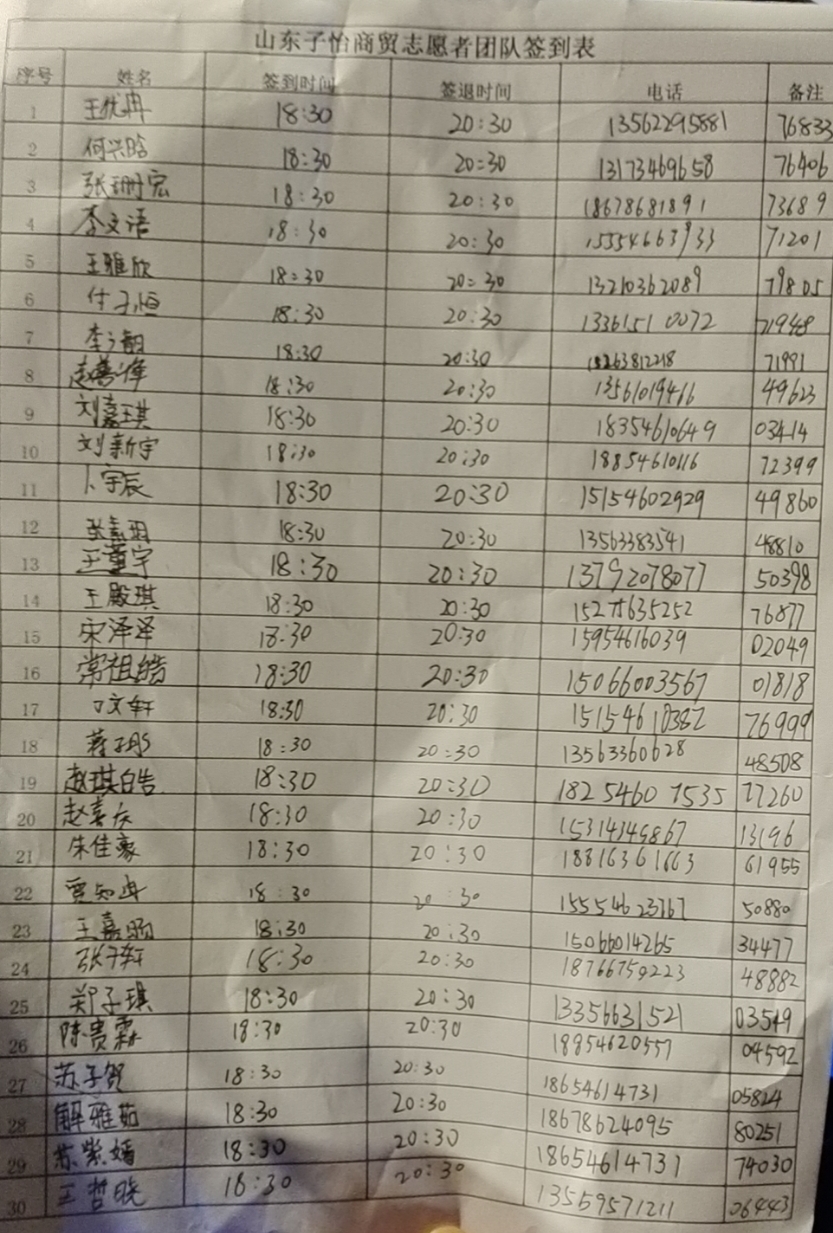 山东子怡商贸志愿者团队签到表
序号 姓名 签到时间 签退时间 电话 备注
1 王优冉 18:30 20:30 13562295881 76833
2 何兴晗 18:30 20:30 13173469658 76406
3 张珊宏 18:30 20:30 18678681891 73689
4 李文语 18:30 20:30 15554663933 71201
5 王雅欣 18:30 20:30 13210362089 79805
6 付子恒 18:30 20:30 13361510072 21948
7 18:30 20:30 18263812218 71991
8 18:30 20:30 13561019416 49623
9 刘嘉琪 18:30 20:30 18354610649 03414
10 刘新宇 18:30 20:30 18854610116 72399
11 卜宇辰 18:30 20:30 15154602929 49860
12 张嘉珀 18:30 20:30 13563383541 48810
13 王董宇 18:30 20:30 13792078077 50398
14 王殿琪 18:30 20:30 76877
15 宋泽泽 18:30 20:30 15954616039 02049
16 常祖皓 18:30 20:30 15066003567 01818
17 丁文轩 18:30 20:30 15154610382 76999
18 蒋子彤 18:30 20:30 13563360628 48508
19 赵琪皓 18:30 20:30 18254607535 77260
20 赵嘉庆 18:30 20:30 15314345867 13196
21 朱佳豪 18:30 20:30 18816361663 61955
22 贾知冉 18:30 20:30 15554623767 50880
23 王嘉旸 18:30 20:30 15066014265 34477
24 张子轩 18:30 20:30 18766759223 48882
25 郑子琪 18:30 20:30 13356631521 03549
26 陈贵霖 18:30 20:30 18954620557 04592
27 苏子贺 18:30 20:30 18654614731 05824
28 解雅茹 18:30 20:30 18678624095 80251
29 苏紫嫣 18:30 20:30 18654614731 74030
30 王哲晓 18:30 20:30 13559571211 06443